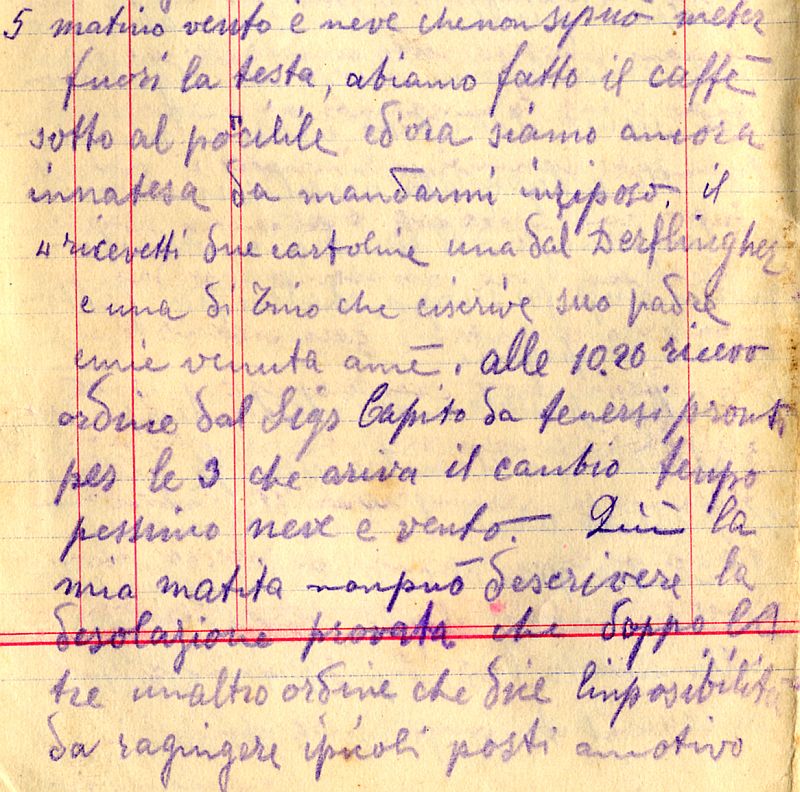 5 matino vento e neve chenon sipuò meter
fuori la testa, abiamo fatto il caffè
sotto al pocilile ed'ora siamo ancora
innatesa da mandarmi inriposo. il
4 ricevetti due cartoline una dal Derflingher
e una di Tino che ciscrive suo padre
cuie venuta amè. alle 10.20 ricevo
ordine dal Sigr Capito da tenersi pronti
per le 3 che ariva il canbio tenpo
pessimo neve e vento. Qui la
mia matita nonpuò descrivere la
desolazione provata che doppo le
tre unaltro ordine che dice linposibilità
da ragingere posti amotivo